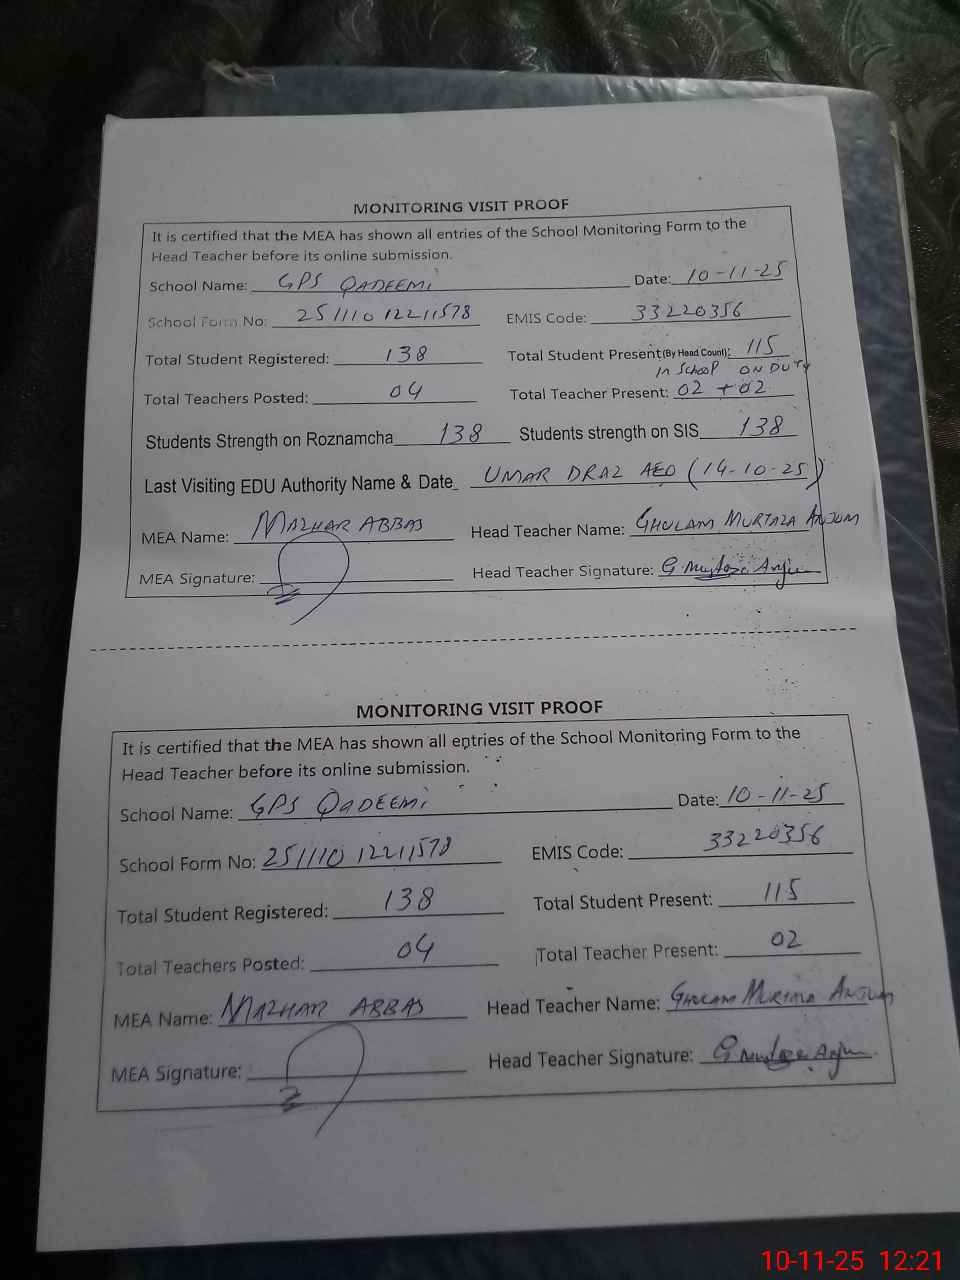 MONITORING VISIT PROOF
It is certified that the MEA has shown all entries of the School Monitoring Form to the
Head Teacher before its online submission.
School Name: GPS QADEEMI Date: 10-11-25
School Form No: 251110 12211578 EMIS Code: 33220356
Total Student Registered: 138 Total Student Present(By Head Count): 115
In School ON DUTY
Total Teachers Posted: 04 Total Teacher Present: 02 + 02
Students Strength on Roznamcha 138 Students strength on SIS 138
Last Visiting EDU Authority Name & Date UMAR DRAZ AEO (14-10-25)
MEA Name: MAZHAR ABBAS Head Teacher Name: GHULAM MURTAZA ANJUM
MEA Signature: Head Teacher Signature: G Murtaza Anjum
MONITORING VISIT PROOF
It is certified that the MEA has shown all entries of the School Monitoring Form to the
Head Teacher before its online submission.
School Name: GPS QADEEMI Date: 10-11-25
School Form No: 251110 12211578 EMIS Code: 33220356
Total Student Registered: 138 Total Student Present: 115
Total Teachers Posted: 04 Total Teacher Present: 02
MEA Name: MAZHAR ABBAS Head Teacher Name: GHULAM MURTAZA ANJUM
MEA Signature: Head Teacher Signature: G Murtaza Anjum
10-11-25 12:21